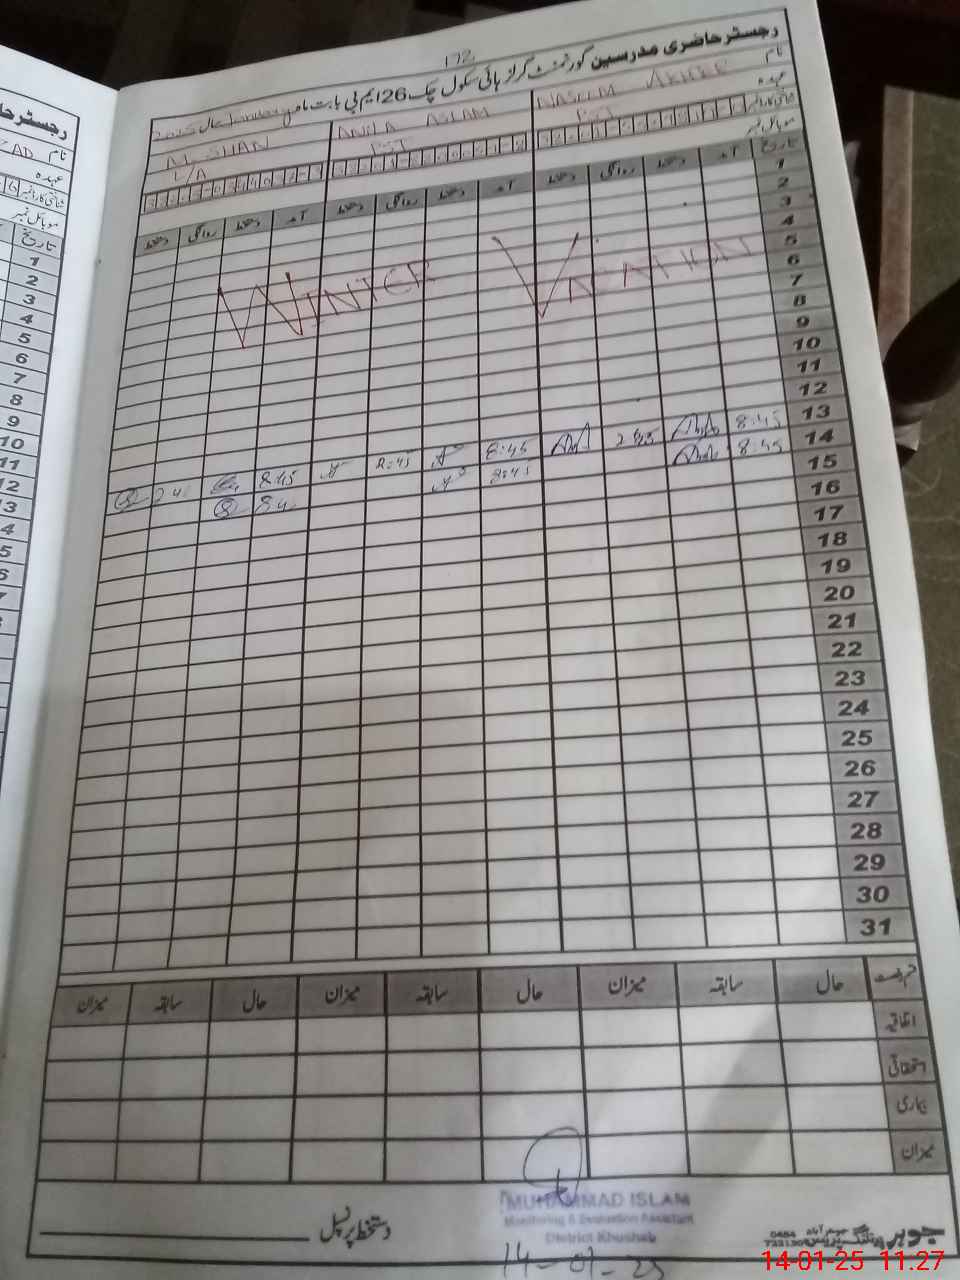 172
رجسٹر حاضری مدرسین گورنمنٹ گرلز ہائی سکول چک 26 ایم بی بابت ماہ January سال 2025
نام NASEEM AKHTER ANILA ASLAM M. SHAN
عہدہ PST PST L/A
شناختی کارڈ نمبر
موبائل نمبر
تاریخ آمد دستخط روانگی دستخط آمد دستخط روانگی دستخط آمد دستخط روانگی دستخط
1
2
3
4
5
WINTER VACATION
6
7
8
9
10
11
12
13 8:45 2:45 8:45 2:45 8:45
14 8:45 8:45
15
16
17
18
19
20
21
22
23
24
25
26
27
28
29
30
31
قسم رخصت حال سابقہ میزان حال سابقہ میزان حال سابقہ میزان
اتفاقیہ
استحقاقی
بیماری
میزان
MUHAMMAD ISLAM
Monitoring & Evaluation Assistant
District Khushab
14-01-25
دستخط پرنسپل
جوہر پرنٹنگ پریس جوہر آباد 0454
14-01-25 11.27
رجسٹر حا
نام
عہدہ
شناختی کارڈ نمبر
موبائل نمبر
تاریخ
1
2
3
4
5
6
7
8
9
10
11
12